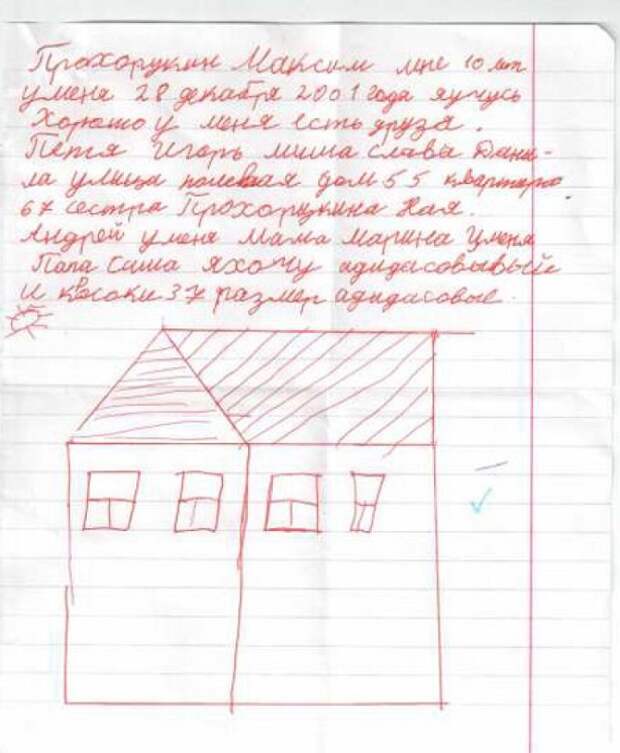 Прохорукин Максим мне 10 лет
умена 28 декабря 2001 года яучусь
Хорошо у меня есть друза.
Петя Игорь миша слава Дани-
ла улица полевая дом 55 квартира.
67 сестра Прохорукина Ная.
Андрей уменя мама марина уменя
Папа Саша яхочу адидасовывый
и кросоки 37 размер адидасовые.